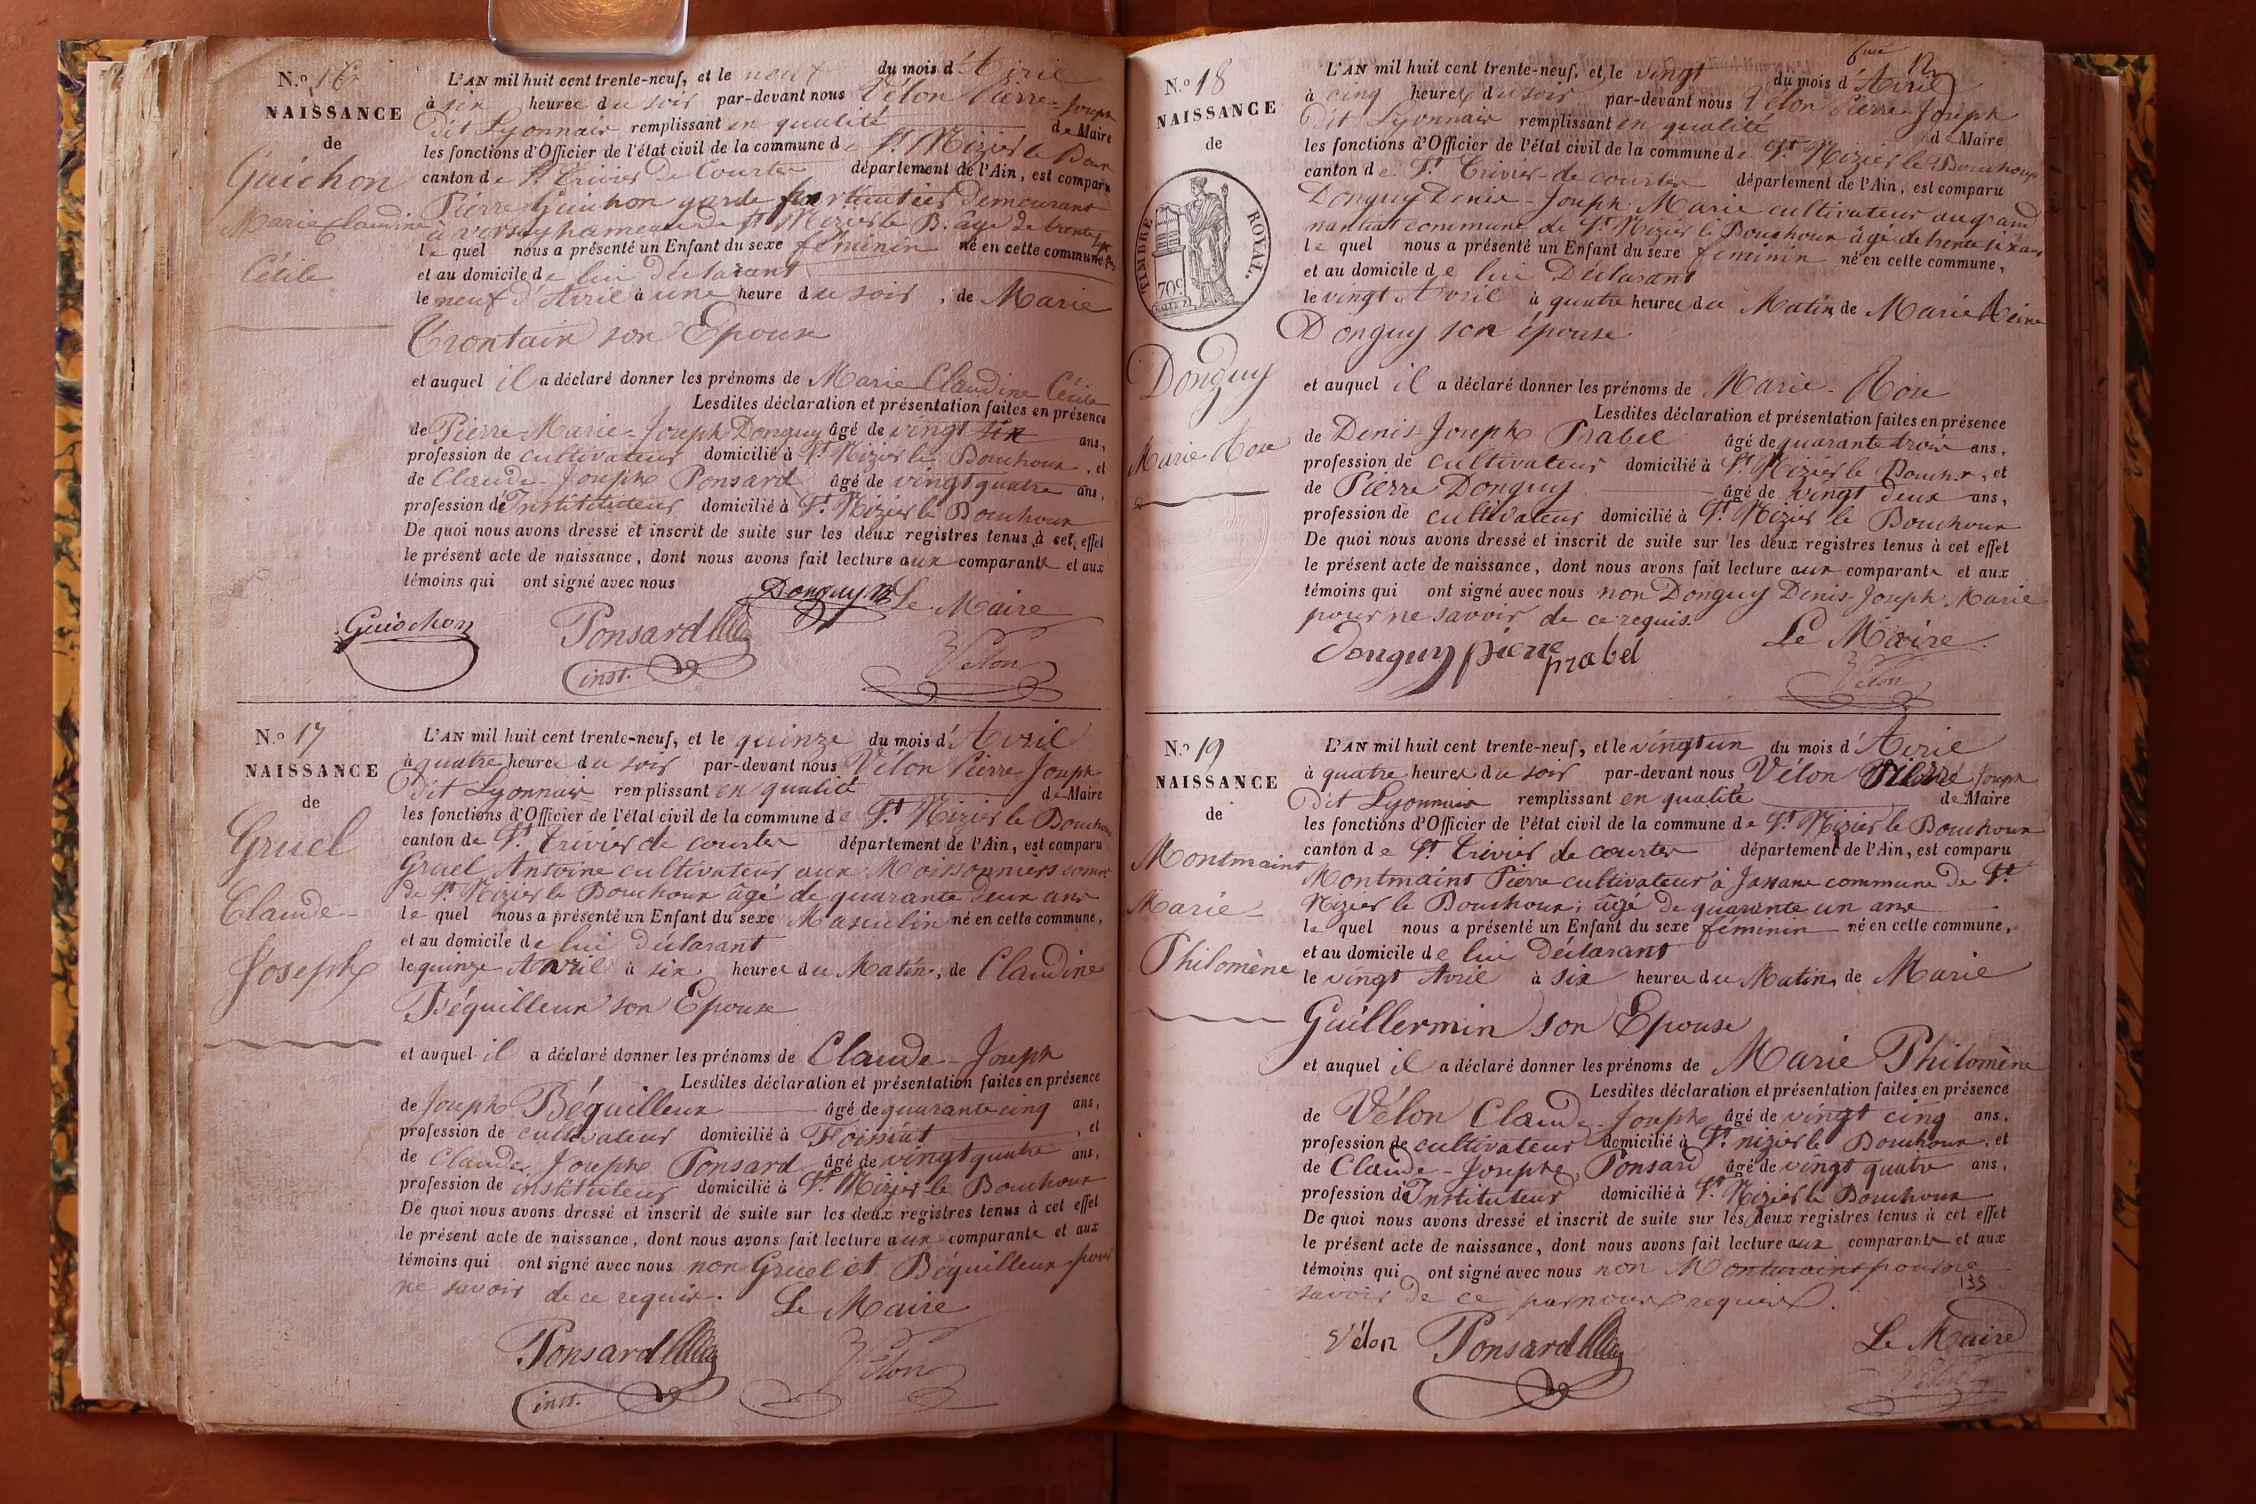 N.º 16
NAISSANCE
de
Guichon
Marie Claudine
Cécile
L'AN mil huit cent trente-neuf, et le neuf du mois d'Avril
à six heures du soir par-devant nous Vélon Pierre-Joseph
Dit Lyonnais remplissant en qualité de Maire
les fonctions d'Officier de l'état civil de la commune de St. Nizier le Boux
canton de St. Trivier de Courtes département de l'Ain, est comparu
Pierre Guichon garde demeurant
à hameau de St. Nizier le B. âgé de trente
le quel nous a présenté un Enfant du sexe féminin né en cette commune
et au domicile de lui déclarant
le neuf d'Avril à une heure du soir, de Marie
Trontain son Epouse
et auquel il a déclaré donner les prénoms de Marie Claudine Cécile
Lesdites déclaration et présentation faites en présence
de Pierre-Marie-Joseph Donguy âgé de vingt six ans,
profession de cultivateur domicilié à St. Nizier le Bouchoux, et
de Claude-Joseph Ponsard âgé de vingt quatre ans,
profession d'Instituteur domicilié à St. Nizier le Bouchoux
De quoi nous avons dressé et inscrit de suite sur les deux registres tenus à cet effet
le présent acte de naissance, dont nous avons fait lecture aux comparants et aux
témoins qui ont signé avec nous
Donguy Le Maire
Guichon Ponsard
inst. Vélon
N.º 17
NAISSANCE
de
Gruel
Claude-
Joseph
L'AN mil huit cent trente-neuf, et le quinze du mois d'Avril
à quatre heures du soir par-devant nous Vélon Pierre Joseph
Dit Lyonnais remplissant en qualité de Maire
les fonctions d'Officier de l'état civil de la commune de St. Nizier le Bouchoux
canton de St. Trivier de courtes département de l'Ain, est comparu
Gruel Antoine cultivateur aux Moissonniers comne
de St. Nizier le Bouchoux âgé de quarante deux ans
le quel nous a présenté un Enfant du sexe Masculin né en cette commune,
et au domicile de lui déclarant
le quinze Avril à six heures du Matin, de Claudine
Béquilleux son Epouse
et auquel il a déclaré donner les prénoms de Claude-Joseph
Lesdites déclaration et présentation faites en présence
de Joseph Béquilleux âgé de quarante cinq ans,
profession de cultivateur domicilié à Foissiat, et
de Claude Joseph Ponsard âgé de vingt quatre ans,
profession de instituteur domicilié à St. Nizier le Bouchoux
De quoi nous avons dressé et inscrit de suite sur les deux registres tenus à cet effet
le présent acte de naissance, dont nous avons fait lecture aux comparants et aux
témoins qui ont signé avec nous non Gruel et Béquilleux pour
ne savoir de ce requis. Le Maire
Ponsard
inst. Vélon
12
N.º 18
NAISSANCE
de
TIMBRE ROYAL.
70c.
Donguy
Marie-Rose
L'AN mil huit cent trente-neuf, et le vingt du mois d'Avril
à cinq heures du soir par-devant nous Vélon Pierre-Joseph
Dit Lyonnais remplissant en qualité de Maire
les fonctions d'Officier de l'état civil de la commune de St. Nizier le Bouchoux
canton de St. Trivier-de-courtes département de l'Ain, est comparu
Donguy Denis-Joseph-Marie cultivateur au grand
commune de St. Nizier le Bouchoux âgé de trente six ans
le quel nous a présenté un Enfant du sexe féminin né en cette commune,
et au domicile de lui Déclarant
le vingt Avril à quatre heures du Matin de Marie Reine
Donguy son épouse
et auquel il a déclaré donner les prénoms de Marie-Rose
Lesdites déclaration et présentation faites en présence
de Denis-Joseph Prabel âgé de quarante trois ans,
profession de cultivateur domicilié à St. Nizier le Bouchx, et
de Pierre Donguy âgé de vingt deux ans,
profession de cultivateur domicilié à St. Nizier le Bouchoux
De quoi nous avons dressé et inscrit de suite sur les deux registres tenus à cet effet
le présent acte de naissance, dont nous avons fait lecture aux comparants et aux
témoins qui ont signé avec nous non Donguy Denis-Joseph-Marie
pour ne savoir de ce requis.
Donguy pierre prabel Le Maire
Vélon
N.º 19
NAISSANCE
de
Montmaint
Marie-
Philomène
L'AN mil huit cent trente-neuf, et le vingt un du mois d'Avril
à quatre heures du soir par-devant nous Vélon Pierre Joseph
Dit Lyonnais remplissant en qualité de Maire
les fonctions d'Officier de l'état civil de la commune de St. Nizier le Bouchoux
canton de St. Trivier de courtes département de l'Ain, est comparu
Montmaint Pierre cultivateur à Jassans commune de St.
Nizier le Bouchoux, âgé de quarante un ans
le quel nous a présenté un Enfant du sexe féminin né en cette commune,
et au domicile de lui déclarant
le vingt Avril à six heures du Matin, de Marie
Guillermin son Epouse
et auquel il a déclaré donner les prénoms de Marie Philomène
Lesdites déclaration et présentation faites en présence
de Vélon Claude-Joseph âgé de vingt cinq ans,
profession de cultivateur domicilié à St. nizier le Bouchoux, et
de Claude-Joseph Ponsard âgé de vingt quatre ans,
profession d'Instituteur domicilié à St. Nizier le Bouchoux
De quoi nous avons dressé et inscrit de suite sur les deux registres tenus à cet effet
le présent acte de naissance, dont nous avons fait lecture aux comparants et aux
témoins qui ont signé avec nous non Montmaint pour ne
savoir de ce par nous requis. 135
Vélon Ponsard Le Maire
Vélon